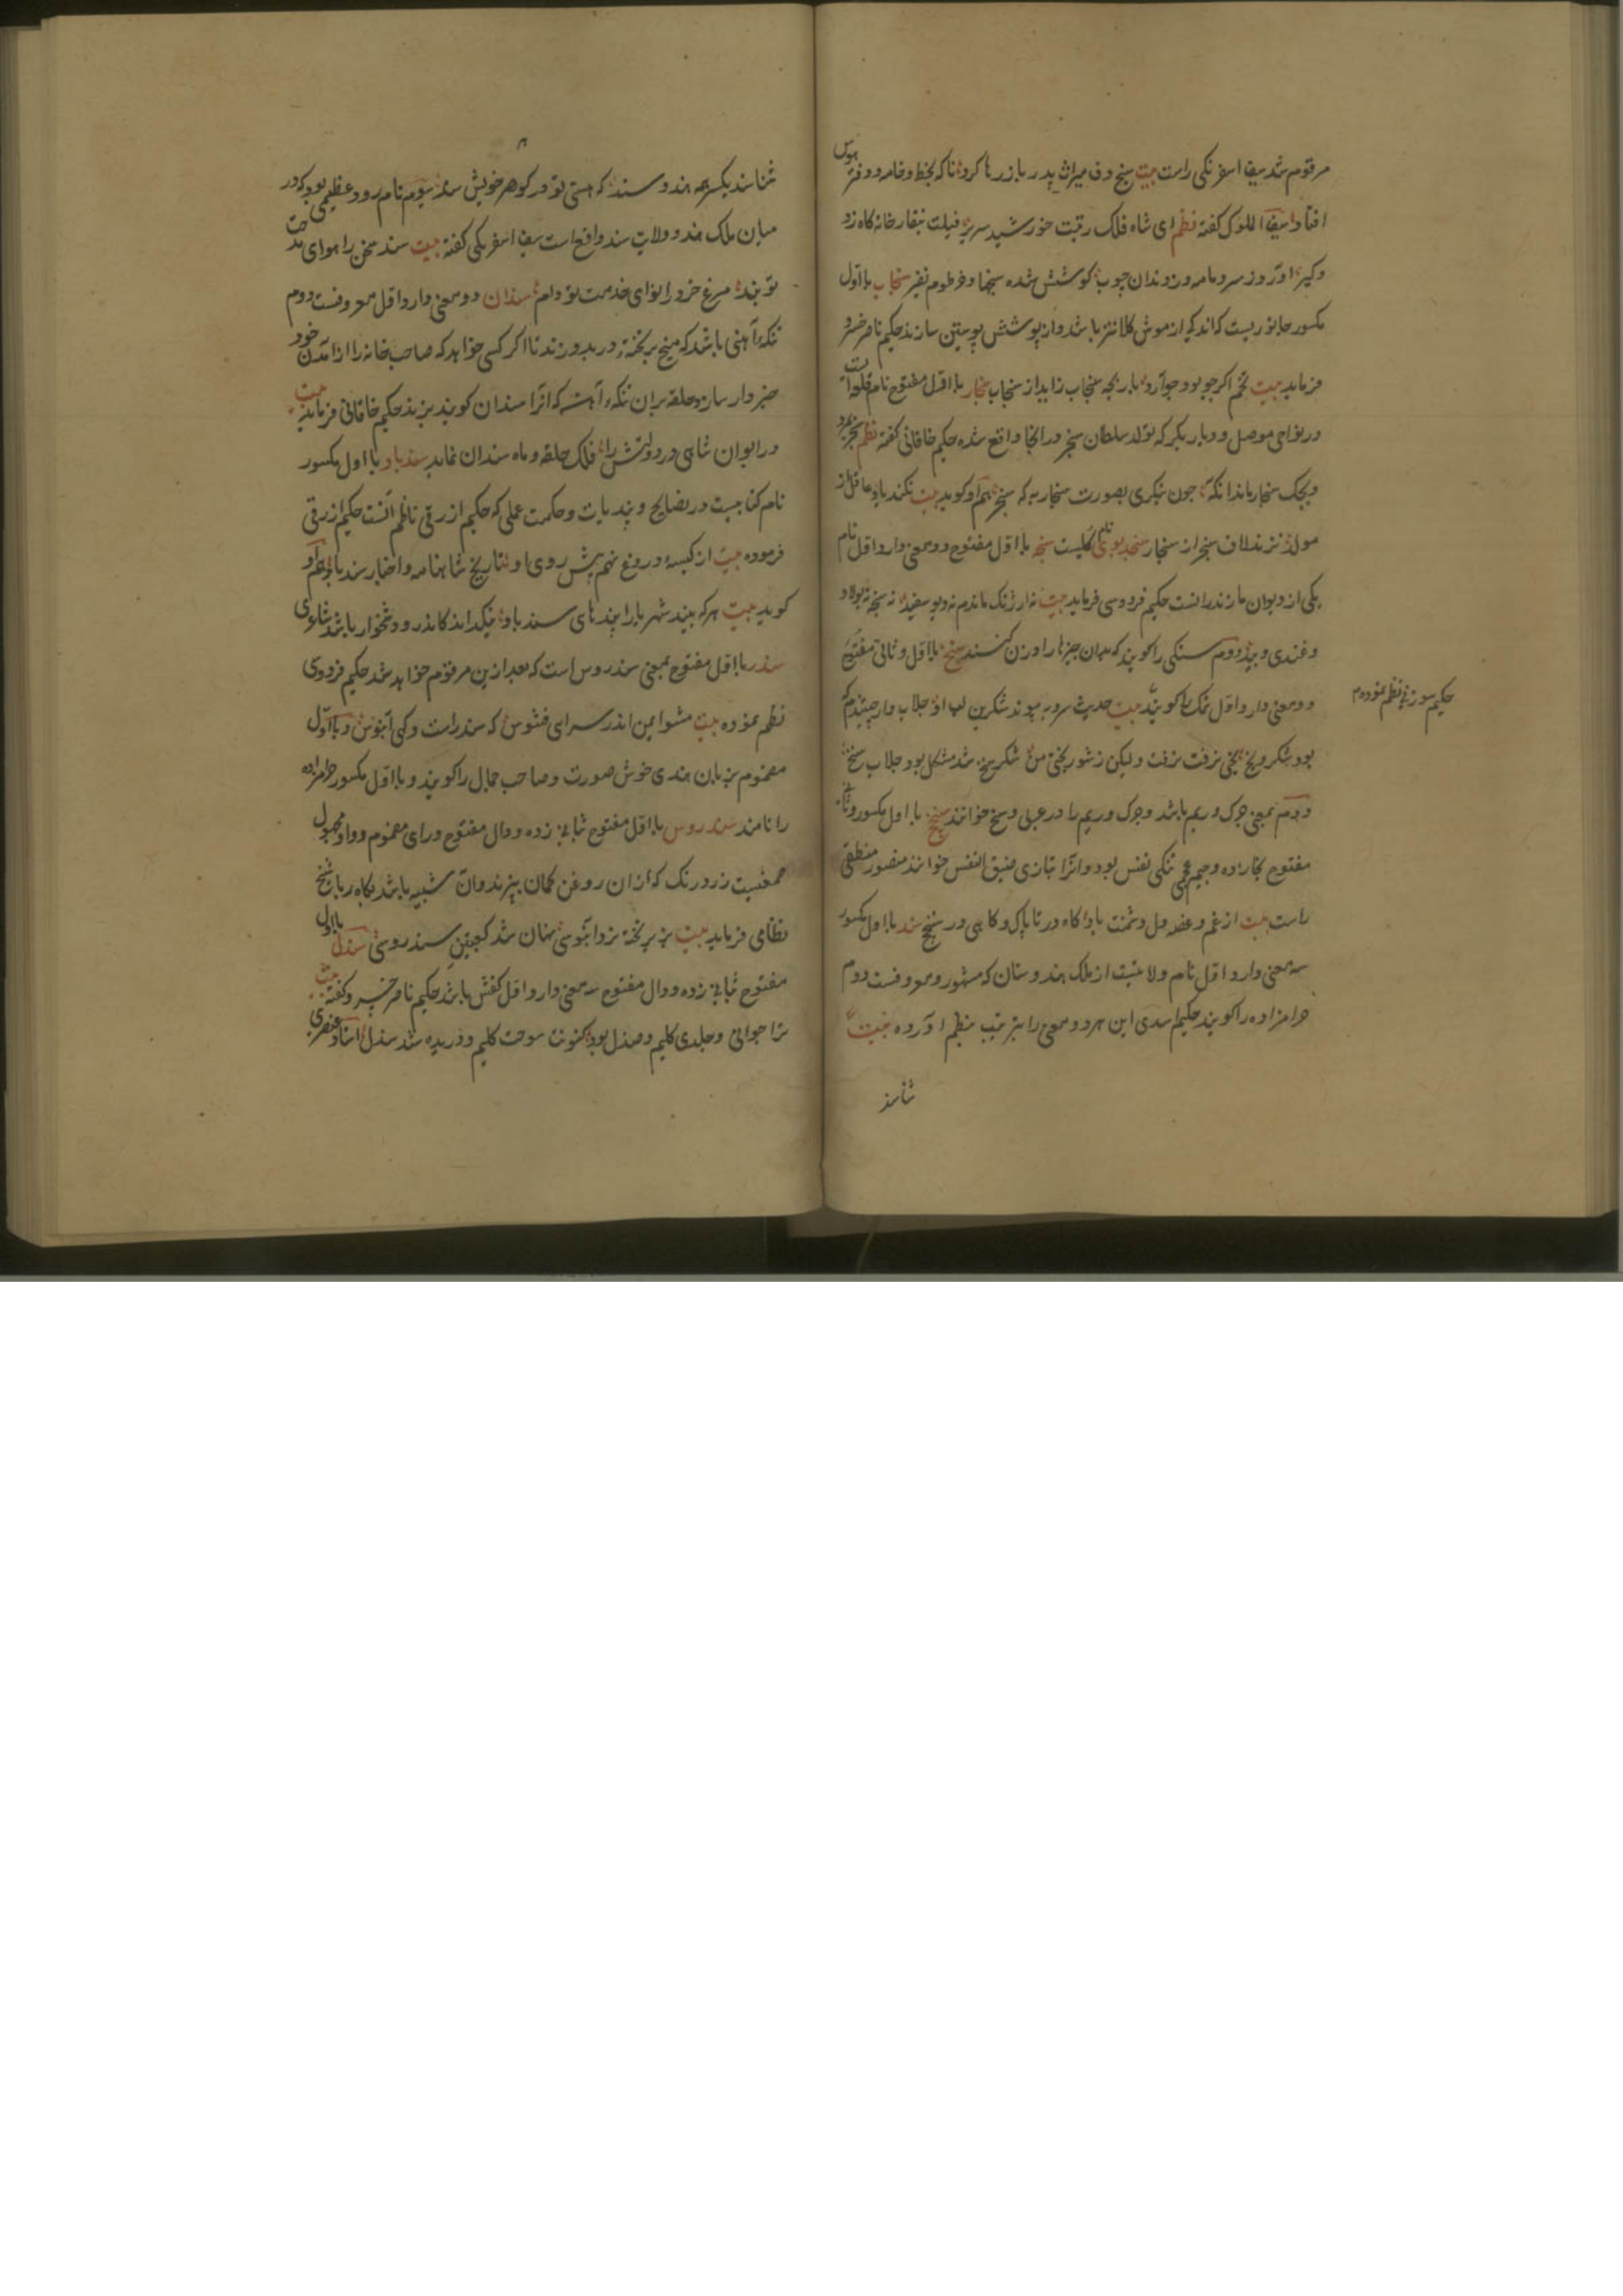 مرقوم شد سیف اسفرنکی راست بیت سنج و دف میراث پدر باز رها کرد تا که بخط و خامه و دفتر هوس
افتاد سیف الملوک کفته نظم ای شاه فلک رتبت خورشید سریر فیلت بنقارخانه کاه زد
و کیر او روز سر و مامه و دندان چوب کوشش شده سنجها و خرطوم نفیر سنجاب با اول
مکسور جانوریست که اندکی از موش کلانتر باشد و از پوستش پوستین سازند حکیم ناصر خسرو
فرماید بیت تخم اکر جو بود جو آرد بار بچه سنجاب زاید از سنجاب سنجار با اول مفتوح نام قلعه ایست
در نواحی موصل و دیار بکر که تولد سلطان سنجر در انجا واقع شده حکیم خاقانی کفته نظم
سنجار بماند چون بنکری بصورت سنجار به که سنجر هم او کوید بیت نکند یاد عاقل از
مولد نزند لاف سنجر از سنجار سنجد بوی نام کلیست سنجه با اول مفتوح دو معنی دارد اول نام
یکی از دیوان مازندرانست حکیم فردوسی فرماید بیت نه ارژنک ماندم نه دیو سفید نه سنجه نه پولاد
و غندی و بید دوم سنکی را کویند که بدان چیزها را وزن کنند سنخ با اول و ثانی مفتوح
دو معنی دارد اول نمک را کویند بیت حدیث سرو به پیوند شکرین لب او جلاب
حکیم سوزنی نظم نموده
بود شکر و یخ یخی برفت برفت ولیکن ز شور بختی من شکر شد مشکل بود جلاب سنخ
دوم بمعنی چرک و ریم باشد و چرک و ریم را در عربی وسخ خوانند سنج با اول مکسور و ثانی
مفتوح بخا زده و جیم عجمی تنکی نفس بود و انرا بتازی ضیق النفس خوانند منصور منطقی
راست بیت از غم و غصه دل دشمنت باد کاه در تاپاک و کاهی در سنخج سند با اول مکسور
سه معنی دارد اول نام ولایتیست از ملک هندوستان که مشهور و معروفست دوم
حرامزاده را کویند حکیم اسدی این هر دو معنی را بترتیب بنظم آورده بیت
شناسند
شناسند یکسر همه هند و سند که هستی تو در کوهر خویش سند سیوم نام رود عظیمی بود که در
میان ملک هند و ولایت سند واقع است سیف اسفرنکی کفته بیت سند سخن را هوای مدحت
تو بند مرغ خرد را نوای خدمت تو دام سندان دو معنی دارد اول معروفست دوم
تنکه آهنی باشد که میخ بر تخته در بدوزند تا اکر کسی خواهد که صاحب خانه را از آمدن خود
خبردار سازد حلقه بران تنکه آهن که انرا سندان کویند بزند حکیم خاقانی فرماید بیت
در ایوان شاهی در دولتش را فلک حلقه و ماه سندان نماید سندباد با اول مکسور
نام کتابیست در نصایح و پندیات و حکمت عملی که حکیم ازرقی ناظم آنست حکیم ازرقی
فرموده بیت از کیسه دروغ نهم پیش روی او تاریخ شاهنامه و اخبار سندباد هم او
کوید بیت هر که بیند شهریارا پندهای سندباد نیک داند کاندرو دشخوار باشد شاعری
سندر با اول مفتوح بمعنی سندروس است که بعد ازین مرقوم خواهد شد حکیم فردوسی
نظم نموده بیت مشو ایمن اندر سرای فسوس که سندر است و کهی آبنوس و با اول
مضموم بزبان هندی خوش صورت و صاحب جمال را کویند و با اول مکسور حرامزاده
را نامند سندروس با اول مفتوح بثانی زده و دال مفتوح و رای مضموم و واو مجهول
صمغیست زرد رنک که ازان روغن کمان پزند و آن شبیه باشد بکاه ربا شیخ
نظامی فرماید بیت بر تخته نرد آبنوسی نهان شد کعبتین سندروسی سندل با اول
مفتوح بثانی زده و دال مفتوح سه معنی دارد اول کفش باشد حکیم ناصر خسرو کفته بیت
ترا جوانی و جلدی کلیم و سندل بود کنونت سوخت کلیم و دریده شد سندل استاد عنصری